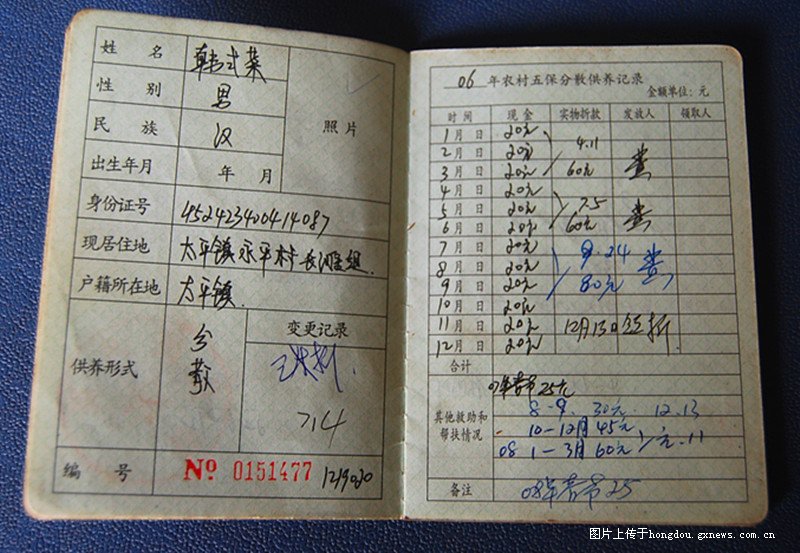 姓 名 韩式荣
性 别 男
民 族 汉
照片
出生年月 年 月
身份证号 452423400414087
现居住地 太平镇永平村长滩组
户籍所在地 太平镇
供养形式 分散
变更记录
714
编 号 № 0151477 1219020
06 年农村五保分散供养记录
金额单位：元
时间 现金 实物折款 发放人 领取人
1月 日 20元
2月 日 20元 4.11
3月 日 20元 60元
4月 日 20元
5月 日 20元 7.5
6月 日 20元 60元
7月 日 20元 9.24
8月 日 20元
9月 日 20元 80元
10月 日 20元
11月 日 20元 12月13日
12月 日 20元
合计
07年春节25元
其他救助和
帮扶情况
8-9 30元 12.13
10-12月 45元
08 1-3月 60元
备注 08年春节25
图片上传于hongdou.gxnews.com.cn